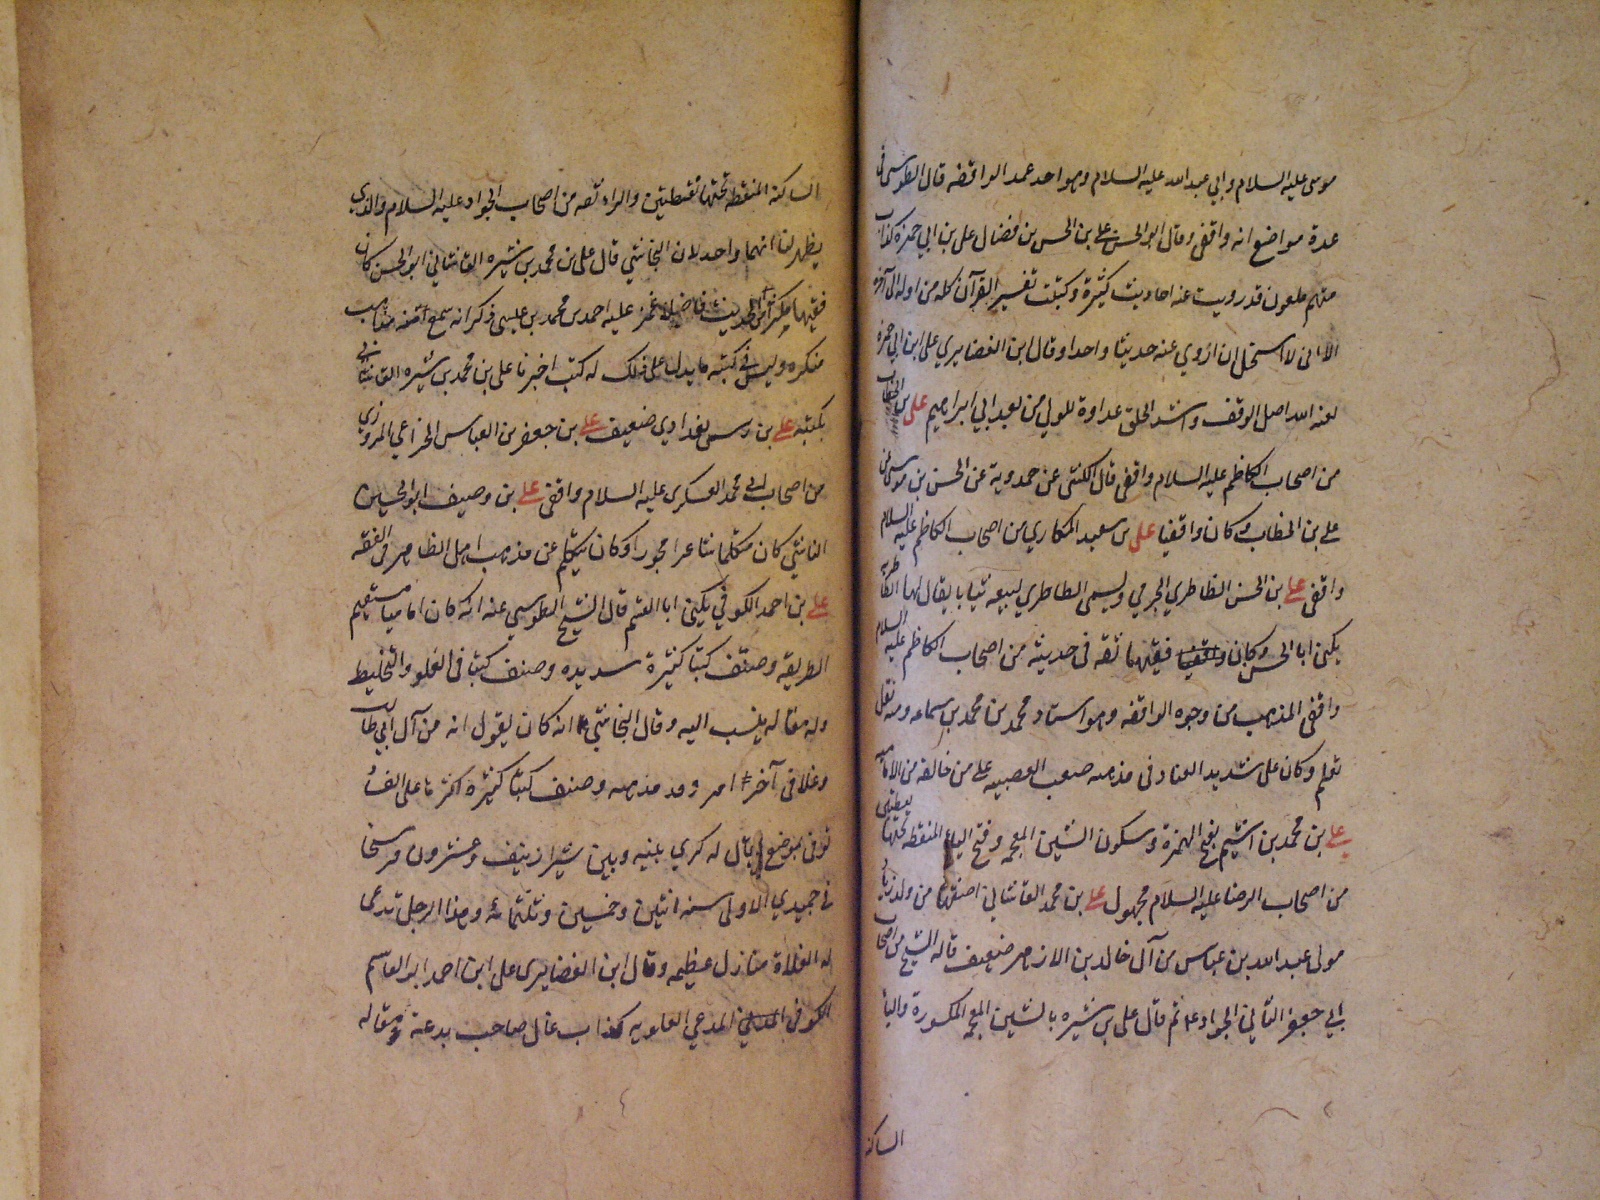 موسى عليه السلام وابي عبد الله عليه السلام وهو احد عمد الواقفه قال الطوسي في
عدة مواضع انه واقفي وقال ابو الحسن علي بن الحسن بن فضال علي بن ابي حمزه كذاب
متهم ملعون قد رويت عنه احاديث كثيرة وكتبت تفسير القرآن كله من اوله الى آخره
الا اني لا استحل ان اروي عنه حديثا واحدا وقال ابن الغضايري علي ابن ابي حمزه
لعنه الله اصل الوقف واشد الخلق عداوة للولي من بعد ابي ابراهيم علي بن الخطاب
من اصحاب الكاظم عليه السلام واقفي قال الكشي عن حمدوية عن الحسن بن موسى كان
علي بن الخطاب وكان واقفيا علي بن سعيد المكاري من اصحاب الكاظم عليه السلام
واقفي علي بن الحسن الطاطري الجرمي وسمى الطاطري لبيعه ثيابا يقال لها الطاطريه
يكنى ابا الحسن وكان واقفيا فقيها ثقه في حديثه من اصحاب الكاظم عليه السلام
واقفي المذهب من وجوه الواقفه وهو استاد محمد بن محمد بن سماعه ومنه نقل
تعلم وكان علي شديد العناد في مذهبه صعب العصبيه على من خالفه من الاماميه
علي بن محمد بن اشيم بفتح الهمزة وسكون الشين المعجمه وفتح الياء المنقطه تحتها بنقطتين
من اصحاب الرضا عليه السلام مجهول علي بن محمد القاشاني اصفهاني من ولد زياد
مولى عبد الله بن عباس من آل خالد بن الازهر ضعيف قاله الشيخ من اصحاب
ابي جعفر الثاني الجواد ع ثم قال علي بن شيره بالشين المعجمه المكسورة والياء
الساكنه
الساكنه المنقطه تحتها نقطتين والراء ثقه من اصحاب الجواد عليه السلام والذي
يظهر لنا انهما واحد لان النجاشي قال علي بن محمد بن شيره القاشاني ابو الحسن كان
فقيها مكثرا من الحديث فاضلا غمز عليه احمد بن محمد بن عيسى ذكر انه سمع منه مذاهب
منكره وليس في كتبه ما يدل على ذلك له كتب اخبرنا علي بن محمد بن شيره القاشاني
بكتبه علي بن بغدادي ضعيف علي بن جعفر بن العباس الخزاعي المروزي
من اصحاب ابي محمد العسكري عليه السلام واقفي علي بن وصيف ابو الحسين
الناشي كان متكلما شاعرا مجودا وكان يتكلم عن مذهب اهل الظاهر في الفقه
علي بن احمد الكوفي يكنى ابا القسم قال الشيخ الطوسي عنه انه كان اماميا مستقيم
الطريقه وصنف كتبا كثيرة سديده وصنف كتبا في الغلو والتخليط
وله مقاله ينسب اليه وقال النجاشي انه كان يقول انه من آل ابي طالب
وغلا في آخر امره وفسد مذهبه وصنف كتبا كثيرة اكثرها على الفساد
توفى بموضع يقال له كرمي بينه وبين شيراز نيف وعشرون فرسخا
في جميدي الاولى سنه اثنين وخمسين وثلثمائه وهذا الرجل تدعى
له الغلاة منازل عظيمه وقال ابن الغضايري علي ابن احمد ابو القاسم
الكوفي المدعي العلويه كذاب غال صاحب بدعة ومقاله